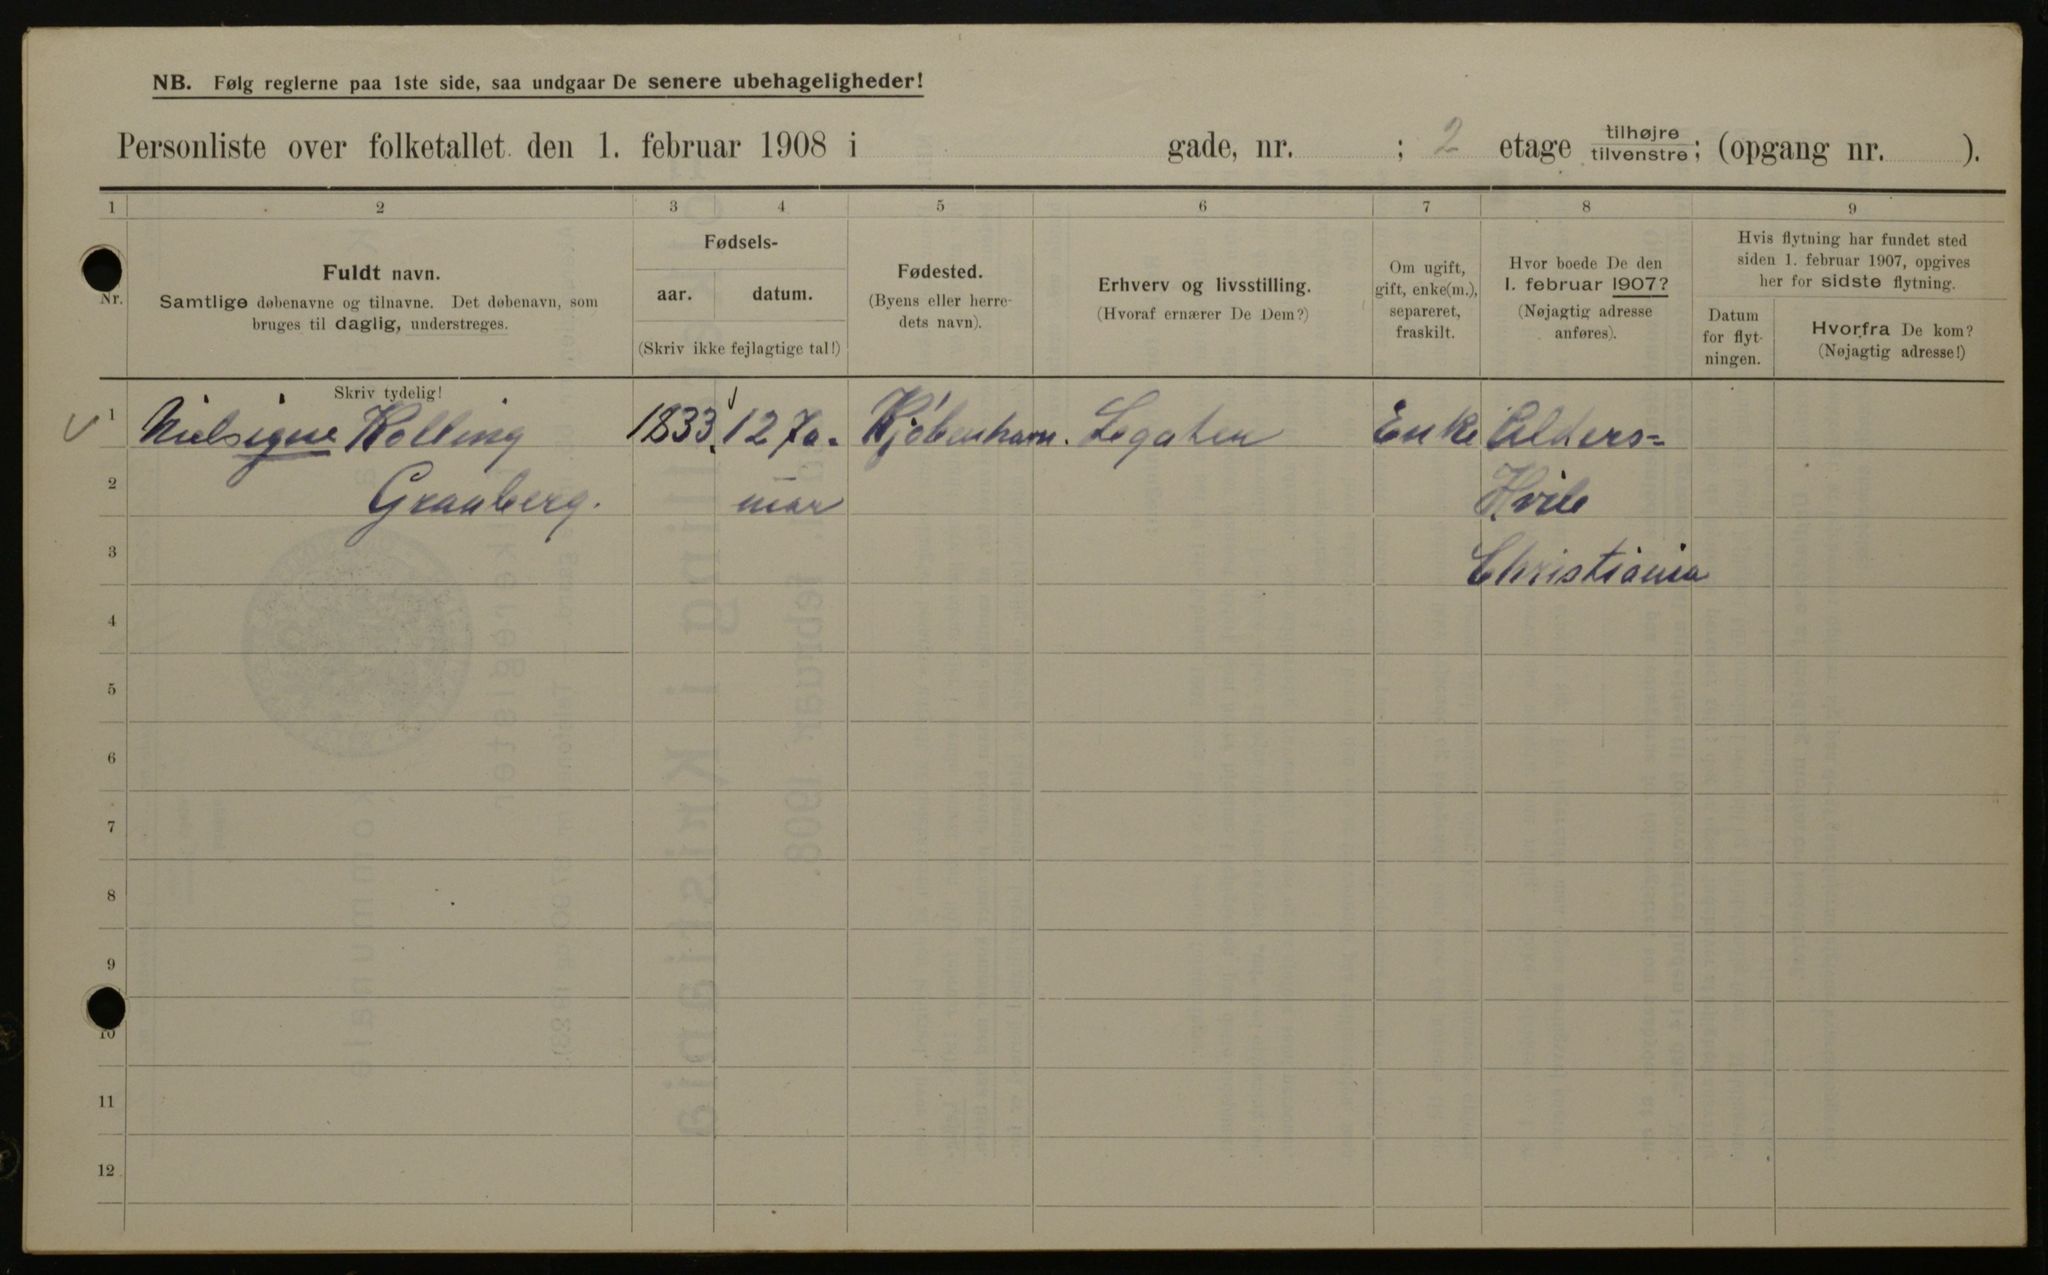 NB. Følg reglerne paa 1ste side, saa undgaar De senere ubehageligheder!
Personliste over folketallet den 1. februar 1908 i gade, nr. ; 2 etage tilhøjre tilvenstre; (opgang nr. ).
1 2 3 4 5 6 7 8 9
Nr.
Fuldt navn.
Samtlige døbenavne og tilnavne. Det døbenavn, som
bruges til daglig, understreges.
Fødsels-
aar. datum.
(Skriv ikke fejlagtige tal!)
Fødested.
(Byens eller herre-
dets navn).
Erhverv og livsstilling.
(Hvoraf ernærer De Dem?)
Om ugift,
gift, enke(m.),
separeret,
fraskilt.
Hvor boede De den
1. februar 1907?
(Nøjagtig adresse
anføres).
Hvis flytning har fundet sted
siden 1. februar 1907, opgives
her for sidste flytning.
Datum
for flyt-
ningen.
Hvorfra De kom?
(Nøjagtig adresse!)
Skriv tydelig!
1 Nielsigne Kolling 1833 12 Ja- Kjøbenhavn. Legater Enke Alders-
2 Granberg. nuar Hvile
3 Christiania
4
5
6
7
8
9
10
11
12